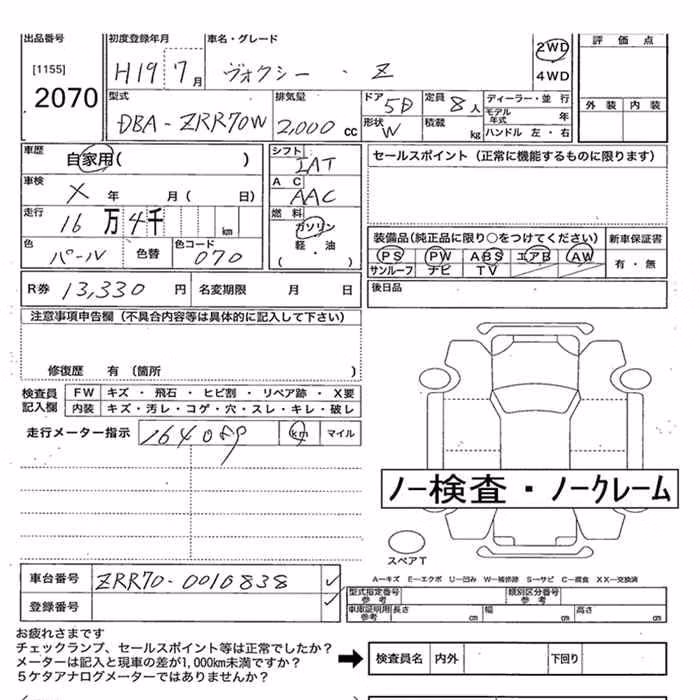 出品番号 初度登録年月 車名・グレード 評価点
[1155] H19 7月 ヴォクシー・Z 2WD 4WD
2070 外装 内装
型式 排気量 ドア 5D 定員 8人 ディーラー・並行
DBA-ZRR70W 2,000cc 形状 W 積載 kg モデル年式 年
ハンドル 左・右
車歴 自家用( ) シフト IAT セールスポイント(正常に機能するものに限ります)
車検 X 年 月( 日) AC AAC
走行 16万4千 km 燃料 ガソリン 軽・油 ( )
装備品(純正品に限り○をつけてください) 新車保証書
色 パール 色替 色コード 070 PS PW ABS エアB AW 有・無
サンルーフ ナビ TV
R券 13,330円 名変期限 月 日 後日品
注意事項申告欄(不具合内容等は具体的に記入して下さい)
修復歴 有 (箇所 )
検査員記入欄 FW キズ・飛石・ヒビ割・リペア跡・X要
内装 キズ・汚レ・コゲ・穴・スレ・キレ・破レ
走行メーター指示 km マイル
ノー検査・ノークレーム
スペアT
A-キズ E-エクボ U-凹み W-補修跡 S-サビ C-腐食 XX-交換済
車台番号 ZRR70-0010838
登録番号
型式指定番号 参考 類別区分番号 参考
車庫証明用 参考 長さ cm 幅 cm 高さ cm
お疲れさまです
チェックランプ、セールスポイント等は正常でしたか?
メーターは記入と現車の差が1,000km未満ですか?
5ケタアナログメーターではありませんか?
検査員名 内外 下回り